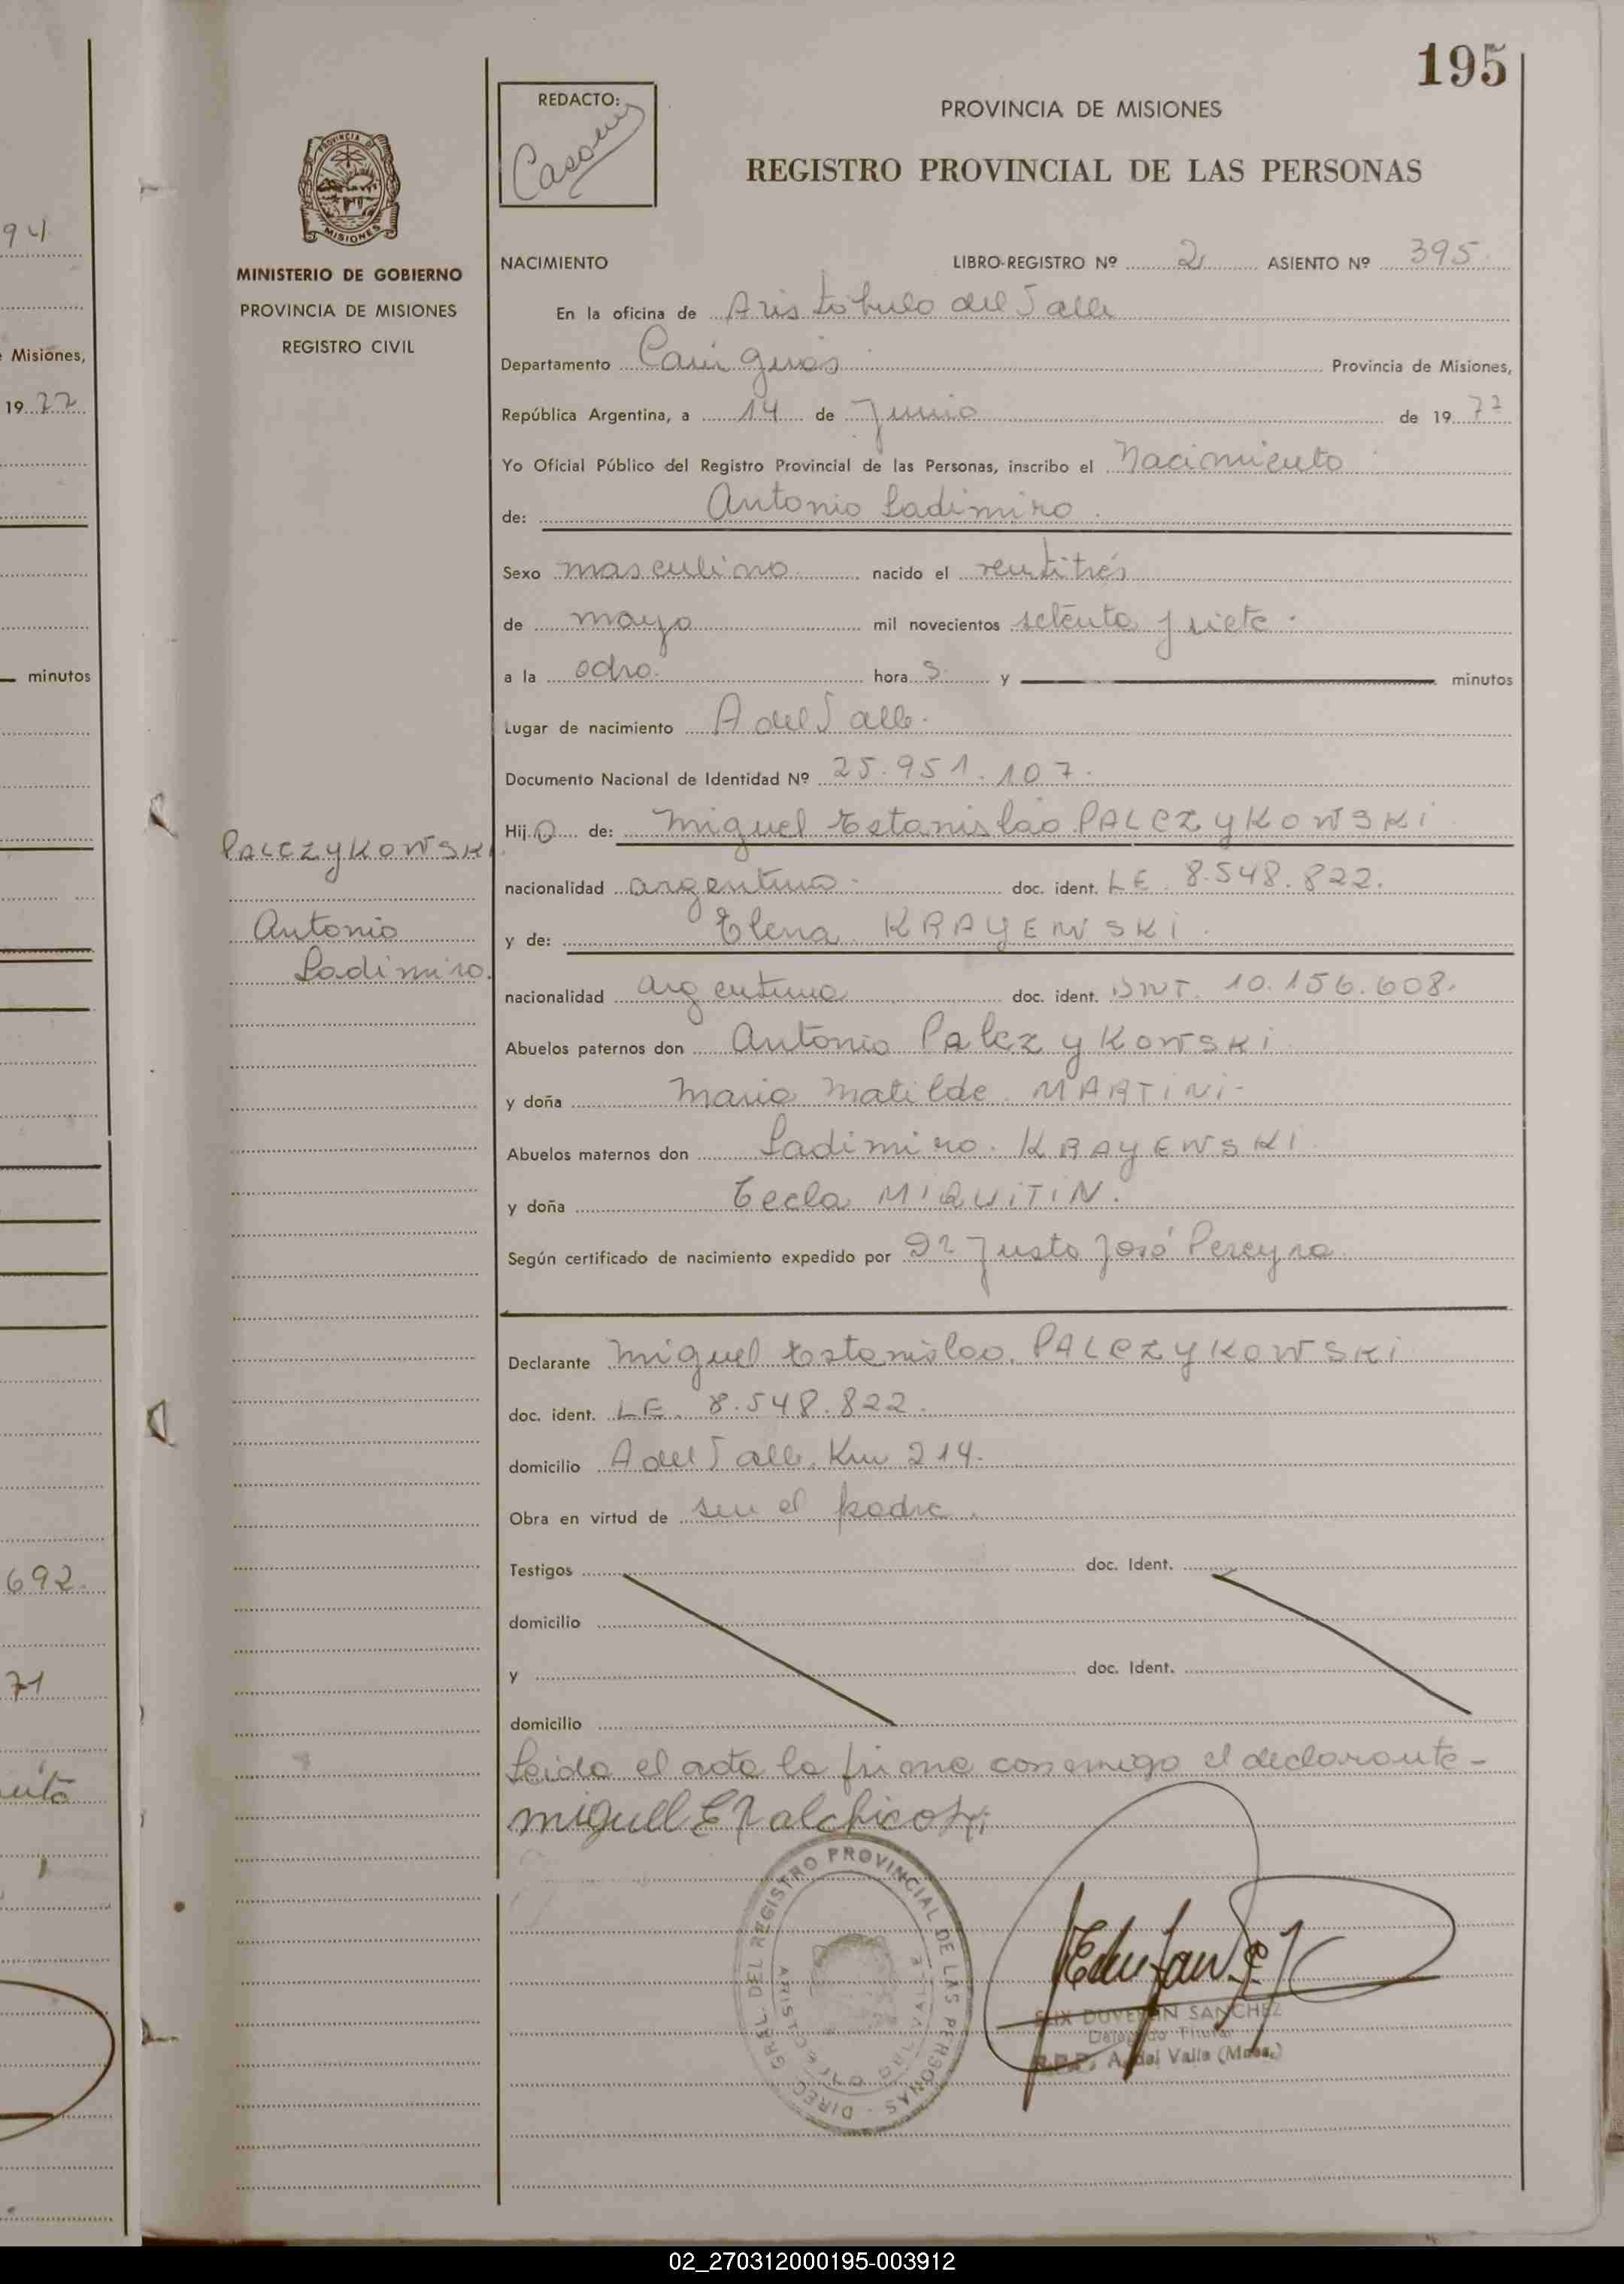 94
Misiones,
19 77
minutos
692.
71
195
REDACTO:
PROVINCIA DE MISIONES
REGISTRO PROVINCIAL DE LAS PERSONAS
MINISTERIO DE GOBIERNO
PROVINCIA DE MISIONES
REGISTRO CIVIL
NACIMIENTO LIBRO-REGISTRO Nº 2 ASIENTO Nº 395
En la oficina de Aristóbulo del Valle
Departamento Cainguás Provincia de Misiones,
República Argentina, a 14 de Junio de 19 77
Yo Oficial Público del Registro Provincial de las Personas, inscribo el Nacimiento
de: Antonio Ladimiro.
Sexo masculino nacido el veintitrés
de mayo mil novecientos setenta y siete.
a la ocho hora s y minutos
Lugar de nacimiento A del Valle.
Documento Nacional de Identidad Nº 25.951.107.
Hij o de: Miguel Estanislao PALCZYKOWSKI
nacionalidad argentina. doc. ident. LE 8.548.822.
y de: Elena KRAYEWSKI.
nacionalidad argentina doc. ident. DNI. 10.156.608.
Abuelos paternos don Antonio PALCZYKOWSKI
y doña Maria Matilde MARTINI-
Abuelos maternos don Ladimiro. KRAYEWSKI.
y doña Tecla MIQUITIN.
Según certificado de nacimiento expedido por Dr Justo José Pereyra.
PALCZYKOWSKI.
Antonio
Ladimiro.
Declarante Miguel Estanislao. PALCZYKOWSKI
doc. ident. LE. 8.548.822.
domicilio A del Valle. Km 214.
Obra en virtud de ser el padre.
Testigos doc. Ident.
domicilio
y doc. Ident.
domicilio
Leida el acta la firma conmigo el declarante-
DIREC. GRAL. DEL REGISTRO PROVINCIAL DE LAS PERSONAS
DUVERAN SANCHEZ
Delegado Titular
R.P.P. A. del Valle (Mnes.)
02_270312000195-003912